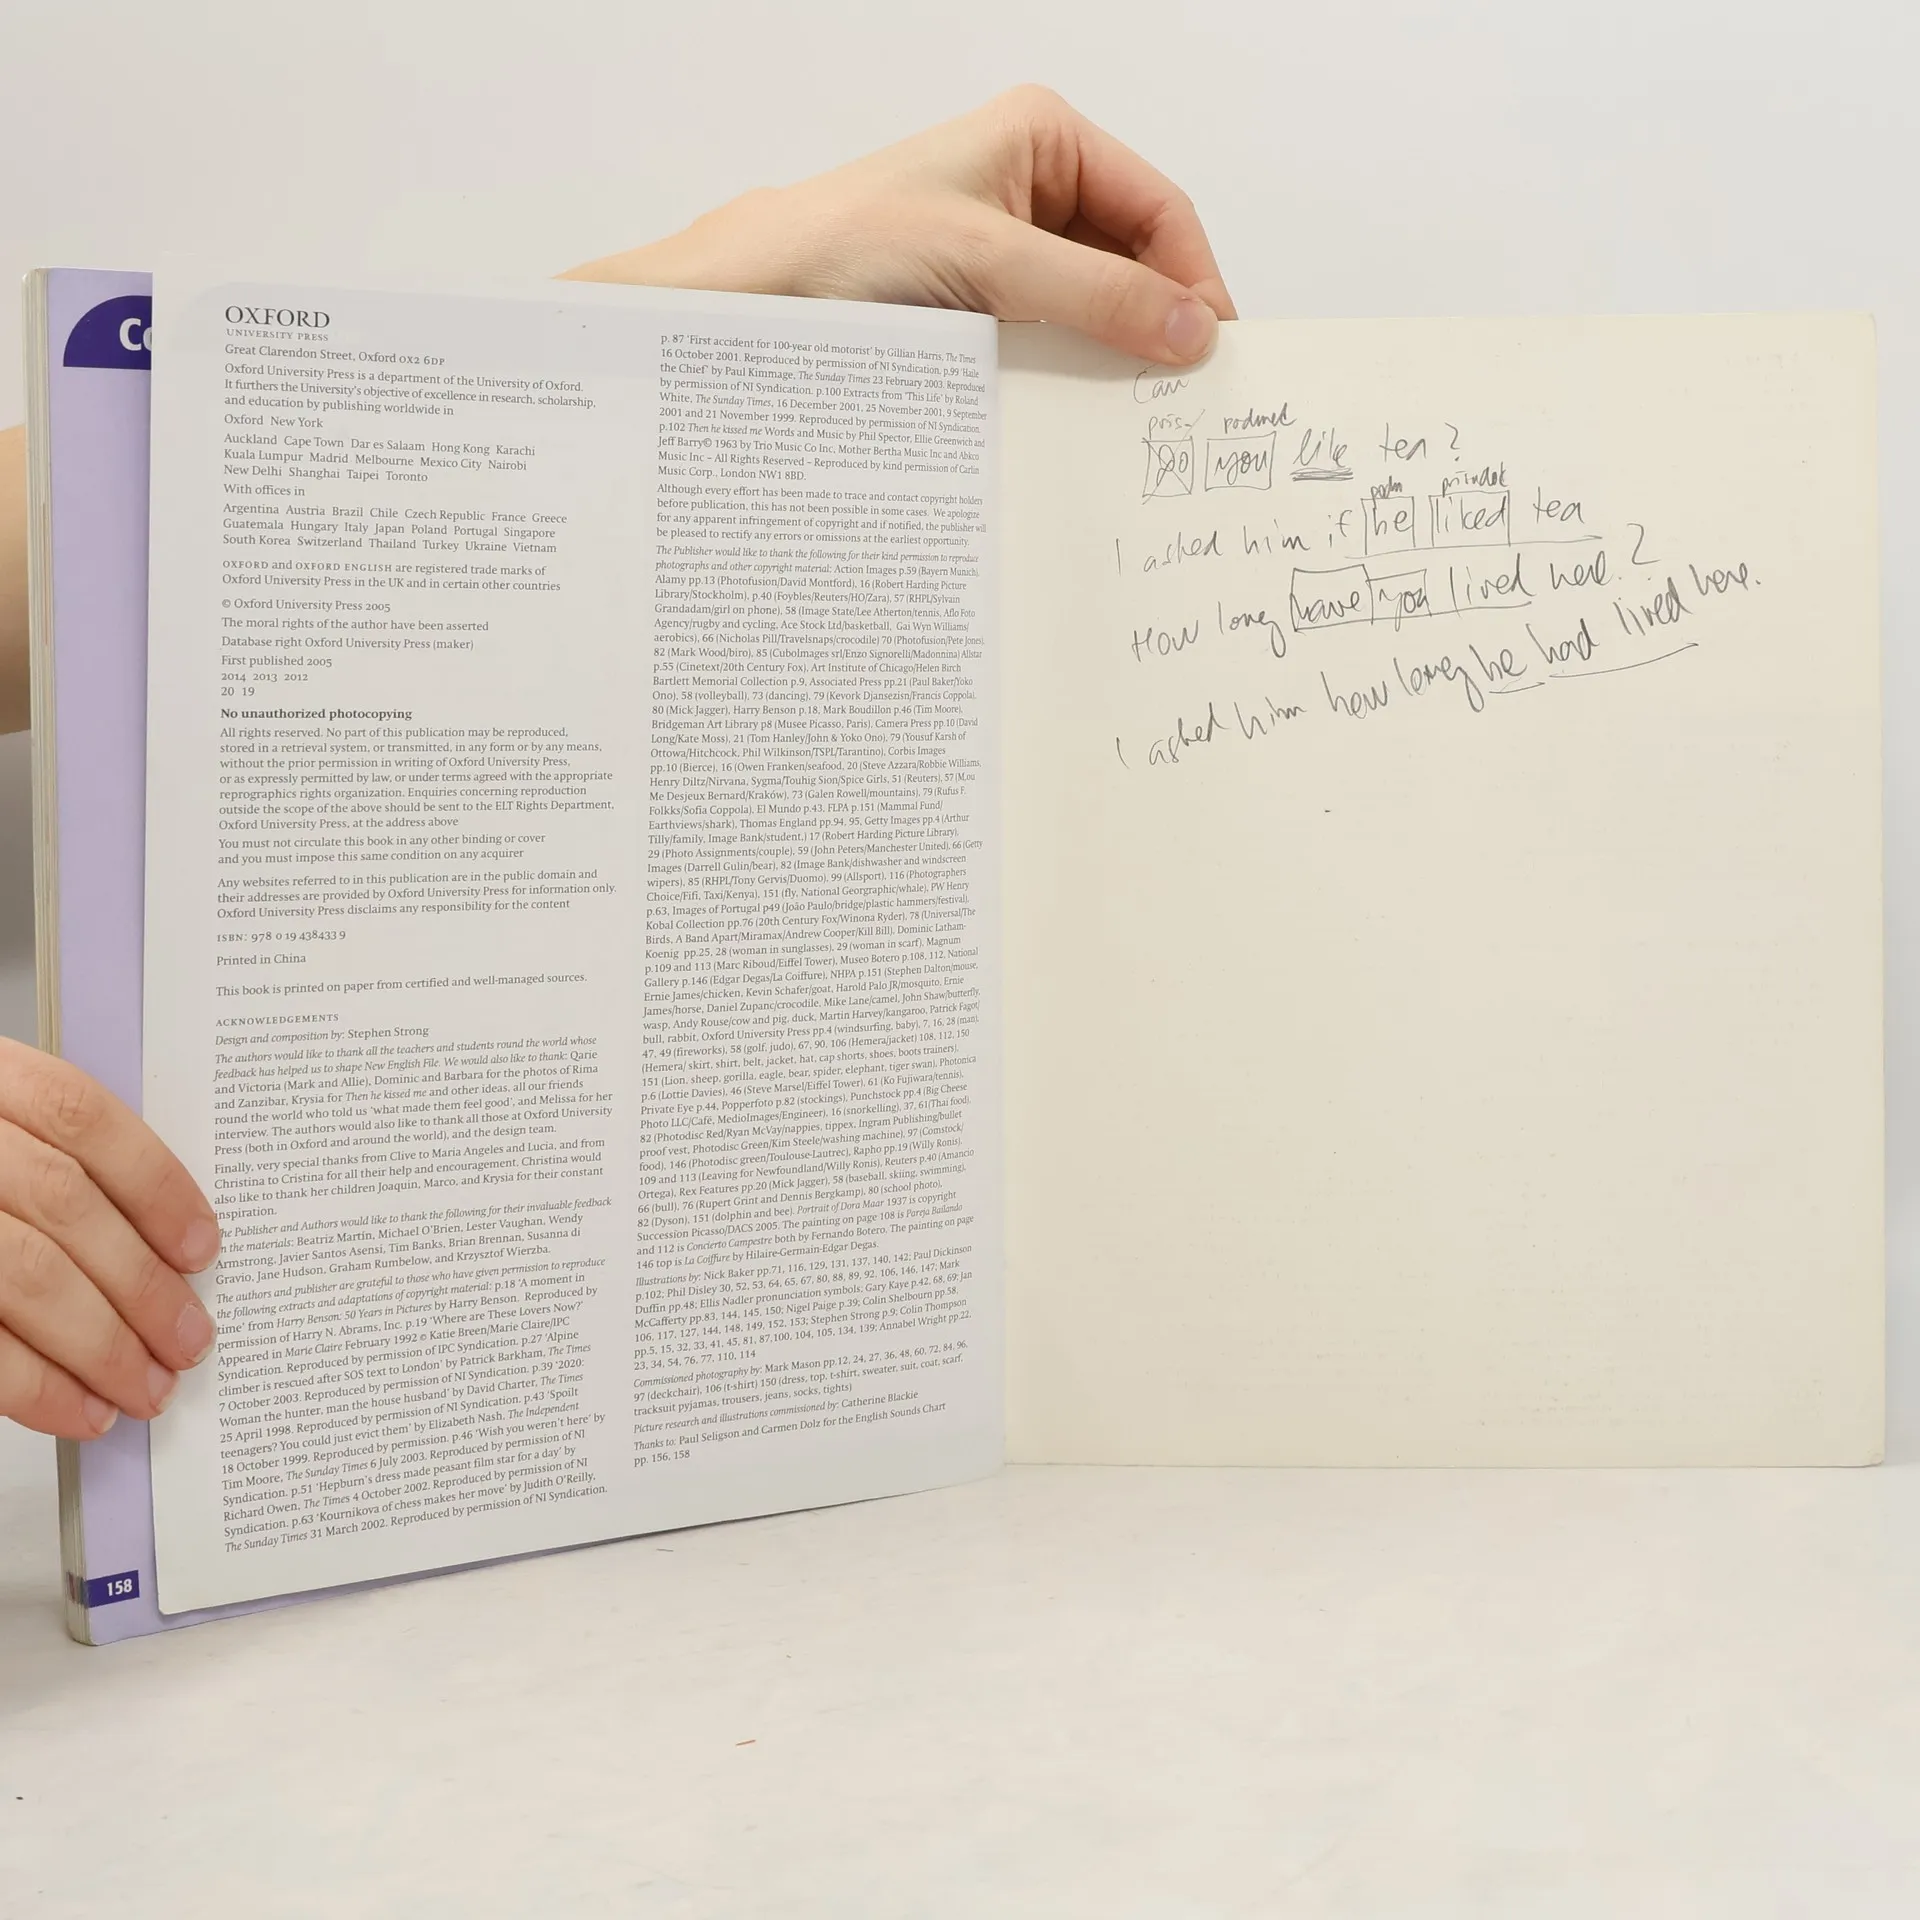 Co
158
OXFORD
UNIVERSITY PRESS
Great Clarendon Street, Oxford OX2 6DP
Oxford University Press is a department of the University of Oxford.
It furthers the University's objective of excellence in research, scholarship,
and education by publishing worldwide in
Oxford New York
Auckland Cape Town Dar es Salaam Hong Kong Karachi
Kuala Lumpur Madrid Melbourne Mexico City Nairobi
New Delhi Shanghai Taipei Toronto
With offices in
Argentina Austria Brazil Chile Czech Republic France Greece
Guatemala Hungary Italy Japan Poland Portugal Singapore
South Korea Switzerland Thailand Turkey Ukraine Vietnam
OXFORD and OXFORD ENGLISH are registered trade marks of
Oxford University Press in the UK and in certain other countries
© Oxford University Press 2005
The moral rights of the author have been asserted
Database right Oxford University Press (maker)
First published 2005
2014 2013 2012
20 19
No unauthorized photocopying
All rights reserved. No part of this publication may be reproduced,
stored in a retrieval system, or transmitted, in any form or by any means,
without the prior permission in writing of Oxford University Press,
or as expressly permitted by law, or under terms agreed with the appropriate
reprographics rights organization. Enquiries concerning reproduction
outside the scope of the above should be sent to the ELT Rights Department,
Oxford University Press, at the address above
You must not circulate this book in any other binding or cover
and you must impose this same condition on any acquirer
Any websites referred to in this publication are in the public domain and
their addresses are provided by Oxford University Press for information only.
Oxford University Press disclaims any responsibility for the content
ISBN: 978 0 19 438433 9
Printed in China
This book is printed on paper from certified and well-managed sources.
ACKNOWLEDGEMENTS
Design and composition by: Stephen Strong
The authors would like to thank all the teachers and students round the world whose
feedback has helped us to shape New English File. We would also like to thank: Qarie
and Victoria (Mark and Allie), Dominic and Barbara for the photos of Rima
and Zanzibar, Krysia for Then he kissed me and other ideas, all our friends
round the world who told us 'what made them feel good', and Melissa for her
interview. The authors would also like to thank all those at Oxford University
Press (both in Oxford and around the world), and the design team.
Finally, very special thanks from Clive to Maria Angeles and Lucia, and from
Christina to Cristina for all their help and encouragement. Christina would
also like to thank her children Joaquin, Marco, and Krysia for their constant
inspiration.
The Publisher and Authors would like to thank the following for their invaluable feedback
on the materials: Beatriz Martin, Michael O'Brien, Lester Vaughan, Wendy
Armstrong, Javier Santos Asensi, Tim Banks, Brian Brennan, Susanna di
Gravio, Jane Hudson, Graham Rumbelow, and Krzysztof Wierzba.
The authors and publisher are grateful to those who have given permission to reproduce
the following extracts and adaptations of copyright material: p.18 'A moment in
time' from Harry Benson: 50 Years in Pictures by Harry Benson. Reproduced by
permission of Harry N. Abrams, Inc. p.19 'Where are These Lovers Now?'
Appeared in Marie Claire February 1992 © Katie Breen/Marie Claire/IPC
Syndication. Reproduced by permission of IPC Syndication. p.27 'Alpine
climber is rescued after SOS text to London' by Patrick Barkham, The Times
7 October 2003. Reproduced by permission of NI Syndication. p.39 '2020:
Woman the hunter, man the house husband' by David Charter, The Times
25 April 1998. Reproduced by permission of NI Syndication. p.43 'Spoilt
teenagers? You could just evict them' by Elizabeth Nash, The Independent
18 October 1999. Reproduced by permission. p.46 'Wish you weren't here' by
Tim Moore, The Sunday Times 6 July 2003. Reproduced by permission of NI
Syndication. p.51 'Hepburn's dress made peasant film star for a day' by
Richard Owen, The Times 4 October 2002. Reproduced by permission of NI
Syndication. p.63 'Kournikova of chess makes her move' by Judith O'Reilly,
The Sunday Times 31 March 2002. Reproduced by permission of NI Syndication.
p. 87 'First accident for 100-year old motorist' by Gillian Harris, The Times
16 October 2001. Reproduced by permission of NI Syndication. p.99 'Haile
the Chief' by Paul Kimmage, The Sunday Times 23 February 2003. Reproduced
by permission of NI Syndication. p.100 Extracts from 'This Life' by Roland
White, The Sunday Times, 16 December 2001, 25 November 2001, 9 September
2001 and 21 November 1999. Reproduced by permission of NI Syndication.
p.102 Then he kissed me Words and Music by Phil Spector, Ellie Greenwich and
Jeff Barry© 1963 by Trio Music Co Inc, Mother Bertha Music Inc and Abkco
Music Inc - All Rights Reserved - Reproduced by kind permission of Carlin
Music Corp., London NW1 8BD.
Although every effort has been made to trace and contact copyright holders
before publication, this has not been possible in some cases. We apologize
for any apparent infringement of copyright and if notified, the publisher will
be pleased to rectify any errors or omissions at the earliest opportunity.
The Publisher would like to thank the following for their kind permission to reproduce
photographs and other copyright material: Action Images p.59 (Bayern Munich),
Alamy pp.13 (Photofusion/David Montford), 16 (Robert Harding Picture
Library/Stockholm), p.40 (Foybles/Reuters/HO/Zara), 57 (RHPL/Sylvain
Grandadam/girl on phone), 58 (Image State/Lee Atherton/tennis, Aflo Foto
Agency/rugby and cycling, Ace Stock Ltd/basketball, Gai Wyn Williams/
aerobics), 66 (Nicholas Pill/Travelsnaps/crocodile) 70 (Photofusion/Pete Jones),
82 (Mark Wood/biro), 85 (CuboImages srl/Enzo Signorelli/Madonnina) Allstar
p.55 (Cinetext/20th Century Fox), Art Institute of Chicago/Helen Birch
Bartlett Memorial Collection p.9, Associated Press pp.21 (Paul Baker/Yoko
Ono), 58 (volleyball), 73 (dancing), 79 (Kevork Djansezisn/Francis Coppola),
80 (Mick Jagger), Harry Benson p.18, Mark Boudillon p.46 (Tim Moore),
Bridgeman Art Library p8 (Musee Picasso, Paris), Camera Press pp.10 (David
Long/Kate Moss), 21 (Tom Hanley/John & Yoko Ono), 79 (Yousuf Karsh of
Ottowa/Hitchcock, Phil Wilkinson/TSPL/Tarantino), Corbis Images
pp.10 (Bierce), 16 (Owen Franken/seafood, 20 (Steve Azzara/Robbie Williams,
Henry Diltz/Nirvana, Sygma/Touhig Sion/Spice Girls, 51 (Reuters), 57 (M.ou
Me Desjeux Bernard/Kraków), 73 (Galen Rowell/mountains), 79 (Rufus F.
Folkks/Sofia Coppola), El Mundo p.43, FLPA p.151 (Mammal Fund/
Earthviews/shark), Thomas England pp.94, 95, Getty Images pp.4 (Arthur
Tilly/family, Image Bank/student,) 17 (Robert Harding Picture Library),
29 (Photo Assignments/couple), 59 (John Peters/Manchester United), 66 (Getty
Images (Darrell Gulin/bear), 82 (Image Bank/dishwasher and windscreen
wipers), 85 (RHPL/Tony Gervis/Duomo), 99 (Allsport), 116 (Photographers
Choice/Fifi, Taxi/Kenya), 151 (fly, National Georgraphic/whale), PW Henry
p.63, Images of Portugal p49 (João Paulo/bridge/plastic hammers/festival),
Kobal Collection pp.76 (20th Century Fox/Winona Ryder), 78 (Universal/The
Birds, A Band Apart/Miramax/Andrew Cooper/Kill Bill), Dominic Latham-
Koenig pp.25, 28 (woman in sunglasses), 29 (woman in scarf), Magnum
p.109 and 113 (Marc Riboud/Eiffel Tower), Museo Botero p.108, 112, National
Gallery p.146 (Edgar Degas/La Coiffure), NHPA p.151 (Stephen Dalton/mouse,
Ernie James/chicken, Kevin Schafer/goat, Harold Palo JR/mosquito, Ernie
James/horse, Daniel Zupanc/crocodile, Mike Lane/camel, John Shaw/butterfly,
wasp, Andy Rouse/cow and pig, duck, Martin Harvey/kangaroo, Patrick Fagot/
bull, rabbit, Oxford University Press pp.4 (windsurfing, baby), 7, 16, 28 (man),
47, 49 (fireworks), 58 (golf, judo), 67, 90, 106 (Hemera/jacket) 108, 112, 150
(Hemera/ skirt, shirt, belt, jacket, hat, cap shorts, shoes, boots trainers),
151 (Lion, sheep, gorilla, eagle, bear, spider, elephant, tiger swan), Photonica
p.6 (Lottie Davies), 46 (Steve Marsel/Eiffel Tower), 61 (Ko Fujiwara/tennis),
Private Eye p.44, Popperfoto p.82 (stockings), Punchstock pp.4 (Big Cheese
Photo LLC/Café, MedioImages/Engineer), 16 (snorkelling), 37, 61(Thai food),
82 (Photodisc Red/Ryan McVay/nappies, tippex, Ingram Publishing/bullet
proof vest, Photodisc Green/Kim Steele/washing machine), 97 (Comstock/
food), 146 (Photodisc green/Toulouse-Lautrec), Rapho pp.19 (Willy Ronis),
109 and 113 (Leaving for Newfoundland/Willy Ronis), Reuters p.40 (Amancio
Ortega), Rex Features pp.20 (Mick Jagger), 58 (baseball, skiing, swimming),
66 (bull), 76 (Rupert Grint and Dennis Bergkamp), 80 (school photo),
82 (Dyson), 151 (dolphin and bee). Portrait of Dora Maar 1937 is copyright
Succession Picasso/DACS 2005. The painting on page 108 is Pareja Bailando
and 112 is Concierto Campestre both by Fernando Botero. The painting on page
146 top is La Coiffure by Hilaire-Germain-Edgar Degas.
Illustrations by: Nick Baker pp.71, 116, 129, 131, 137, 140, 142; Paul Dickinson
p.102; Phil Disley 30, 52, 53, 64, 65, 67, 80, 88, 89, 92, 106, 146, 147; Mark
Duffin pp.48; Ellis Nadler pronunciation symbols; Gary Kaye p.42, 68, 69; Jan
McCafferty pp.83, 144, 145, 150; Nigel Paige p.39; Colin Shelbourn pp.58,
106, 117, 127, 144, 148, 149, 152, 153; Stephen Strong p.9; Colin Thompson
pp.5, 15, 32, 33, 41, 45, 81, 87,100, 104, 105, 134, 139; Annabel Wright pp.22,
23, 34, 54, 76, 77, 110, 114
Commissioned photography by: Mark Mason pp.12, 24, 27, 36, 48, 60, 72, 84, 96,
97 (deckchair), 106 (t-shirt) 150 (dress, top, t-shirt, sweater, suit, coat, scarf,
tracksuit pyjamas, trousers, jeans, socks, tights)
Picture research and illustrations commissioned by: Catherine Blackie
Thanks to: Paul Seligson and Carmen Dolz for the English Sounds Chart
pp. 156, 158
Can
podmet
Do you like tea?
I asked him if he liked tea
How long have you lived here?
I asked him how long he had lived here.